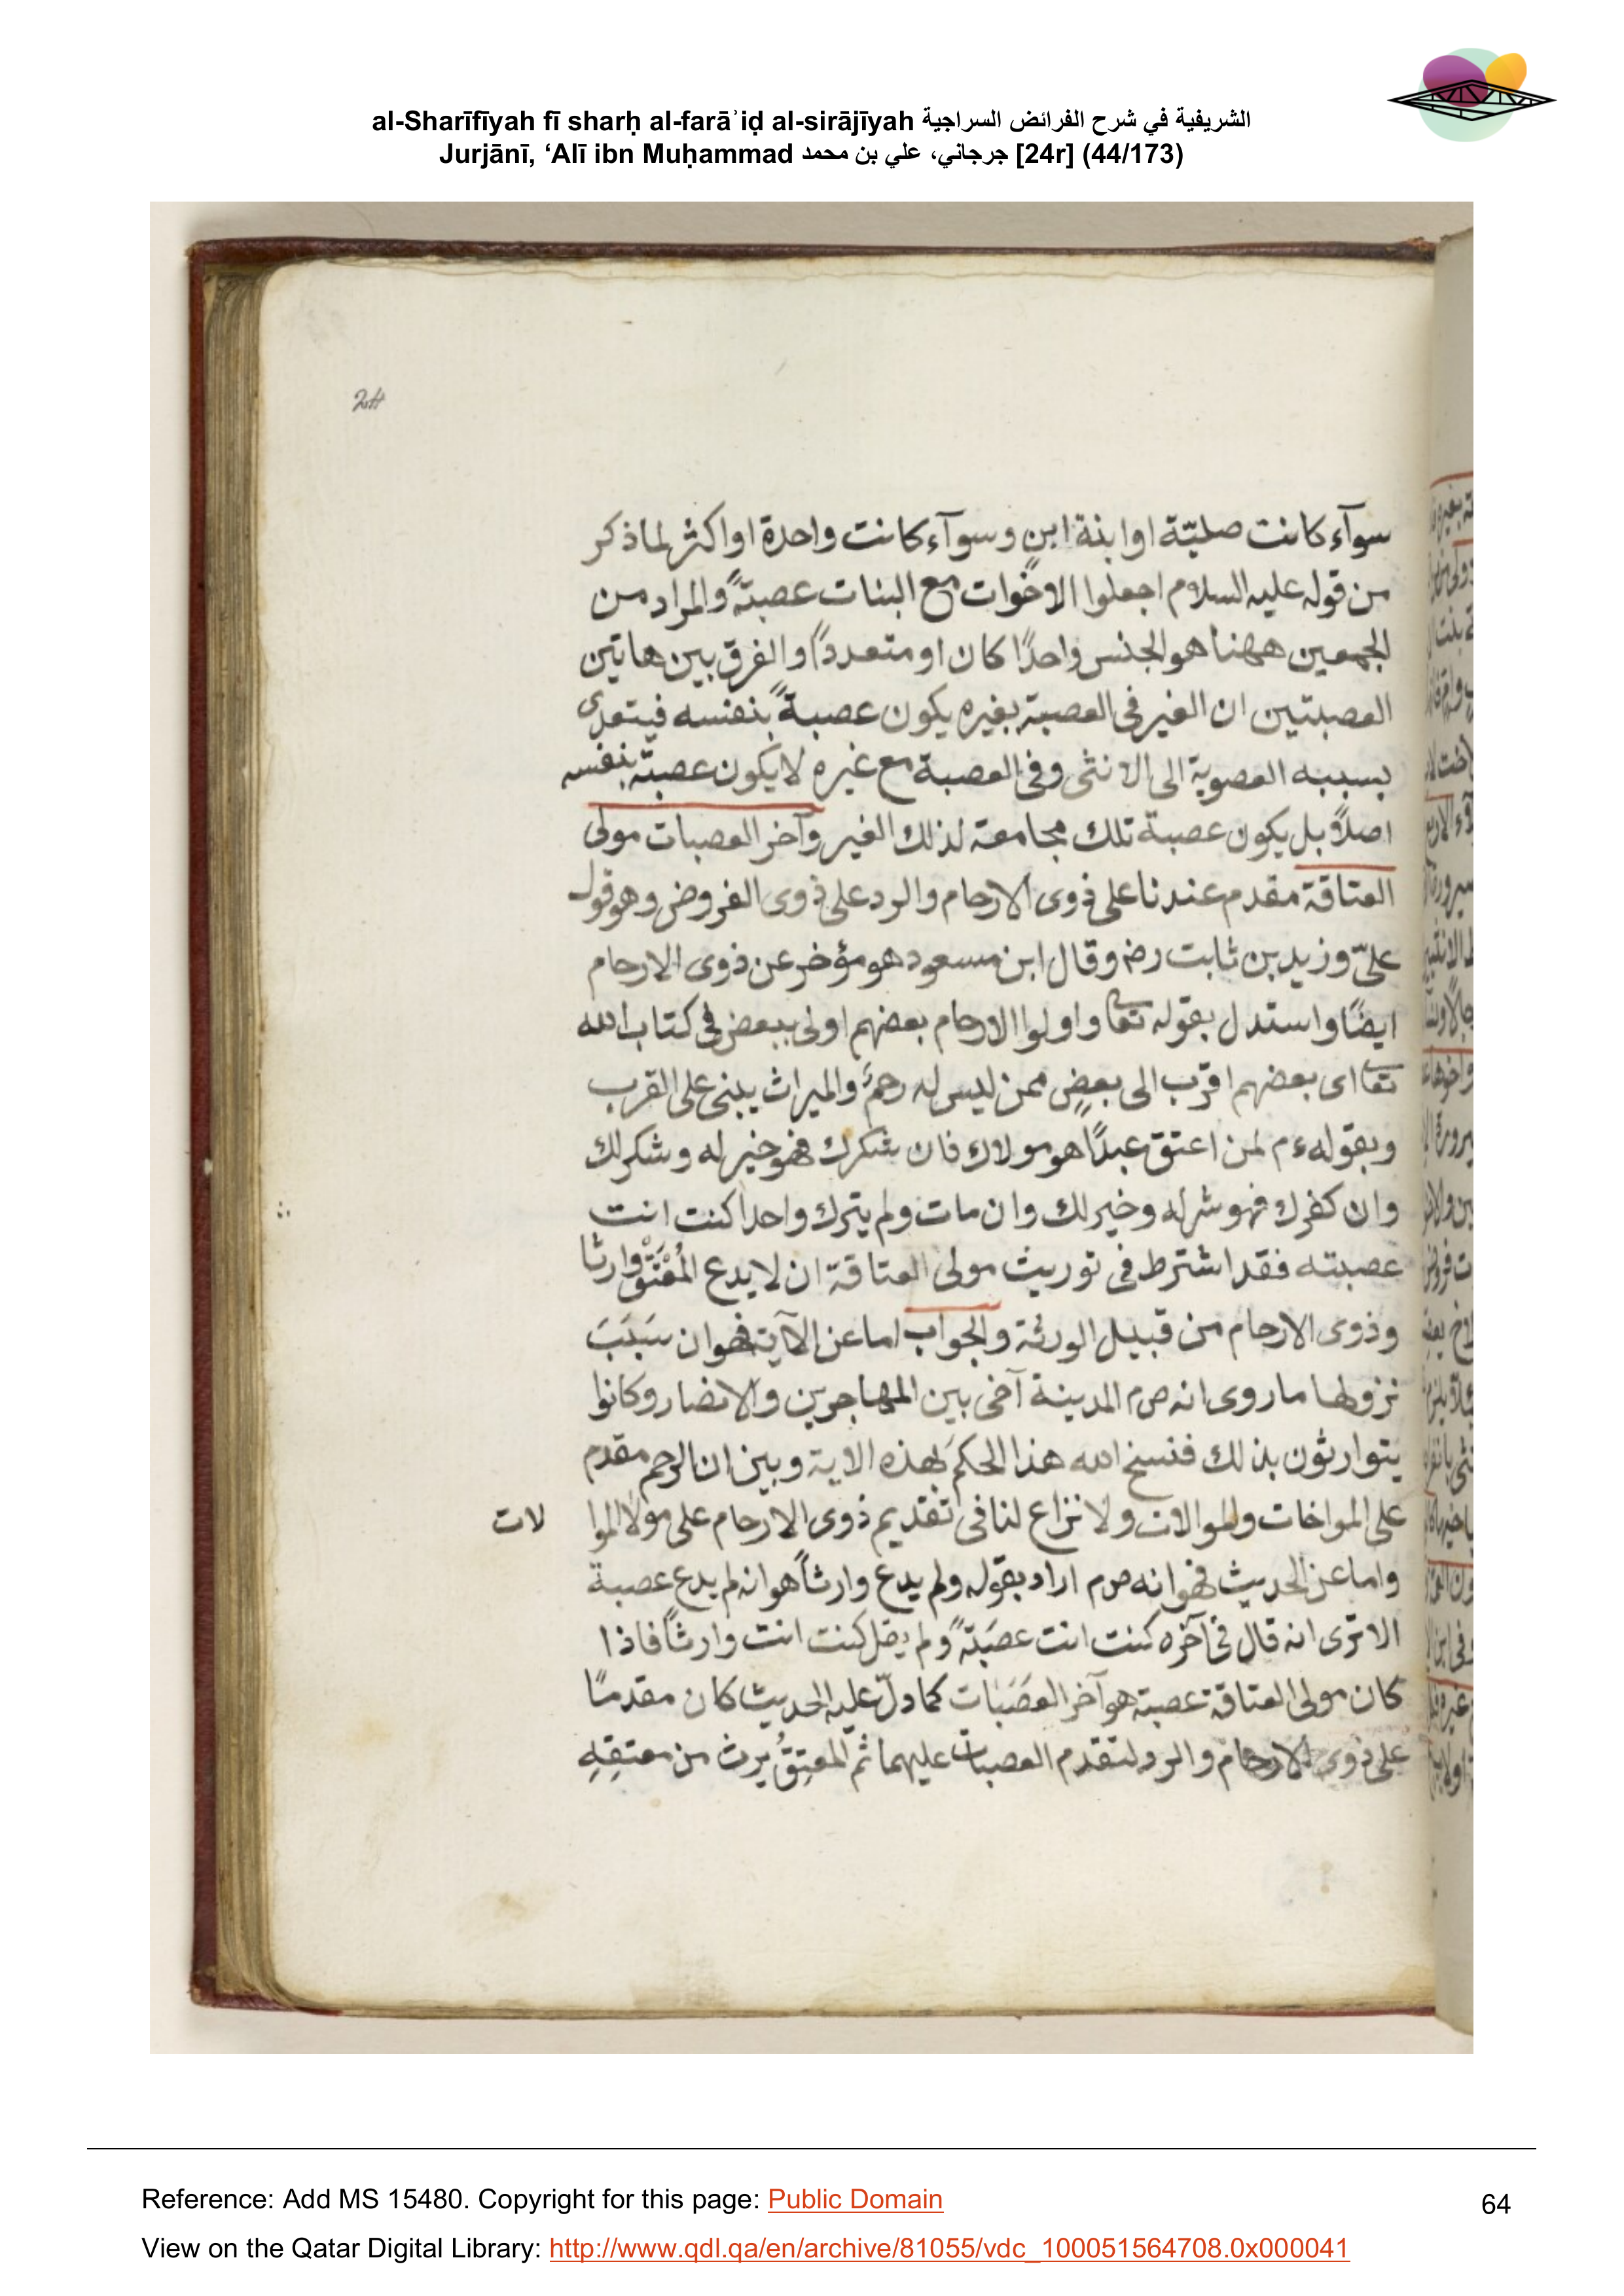 al-Sharīfīyah fī sharḥ al-farāʾiḍ al-sirājīyah الشريفية في شرح الفرائض السراجية
Jurjānī, ‘Alī ibn Muḥammad جرجاني، علي بن محمد [24r] (44/173)
24
سوآء كانت صلبيّة او ابنة ابنٍ وسوآء كانت واحدة او اكثر لما ذكر
من قوله عليه السلام اجعلوا الاخوات مع البنات عصبةً والمراد من
الجمعين ههنا هو الجنس واحدًا كان او متعددًا والفرق بين هاتين
العصبتين ان الغير فى العصبة بغيره يكون عصبةً بنفسه فيتعدى
بسببه العصوبة الى الانثى وفى العصبة مع غيره لا يكون عصبة بنفسه
اصلاً بل يكون عصبة تلك مجامعة لذلك الغير وآخر العصبات مولى
العتاقة مقدم عندنا على ذوى الارحام والرد على ذوى الفروض وهو قول
علىّ وزيد بن ثابت رضه وقال ابن مسعود هو مؤخر عن ذوى الارحام
ايضًا واستدل بقوله تعا واولوا الارحام بعضهم اولى ببعض فى كتاب الله
تعا اى بعضهم اقرب الى بعضٍ ممن ليس له رحمٌ والميراث يبنى على القرب
وبقوله ءم لمن اعتق عبدًا هو مولاك فان شكرك فهو خير له وشر لك
وان كفرك فهو شر له وخير لك وان مات ولم يترك واحدا كنت انت
عصبته فقد اشترط فى توريث مولى العتاقة ان لا يدع المُعْتَقُ وارثا
وذوى الارحام من قبيل الورثة والجواب اما عن الآية فهو ان سَبَبَ
نزولها ما روى انه صم المدينة آخى بين المهاجرين والانصار وكانوا
يتوارثون بذلك فنسخ الله هذا الحكمَ بهذه الاية وبين ان الرحم مقدم
على المواخات والموالات ولا نزاع لنا فى تقديم ذوى الارحام على مولا الموا لات
واما عن الحديث فهو انه صم اراد بقوله ولم يدع وارثاً هو انه لم يدع عصبة
الا ترى انه قال فى آخره كنت انت عصَبَةً ولم يقل كنت انت وارثاً فاذا
كان مولى العتاقة عصبة هو آخر العصَبَات كما دلّ عليه الحديث كان مقدمًا
على ذوى الارحام والرد لتقدم العصبات عليهما ثم المعتِقُ يرث من معتقِهِ
Reference: Add MS 15480. Copyright for this page: Public Domain
64
View on the Qatar Digital Library: http://www.qdl.qa/en/archive/81055/vdc_100051564708.0x000041